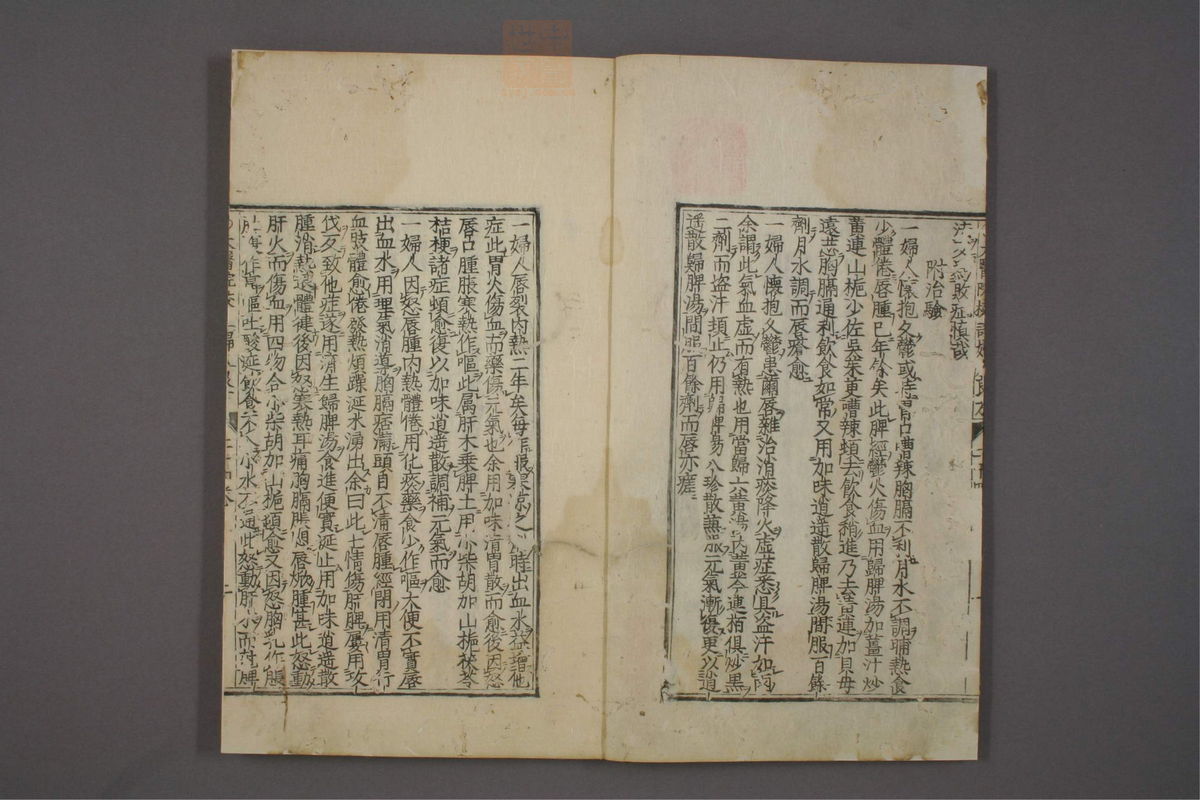 附治驗
一婦人懷抱久鬱或時胃口嘈辣胸膈不利月水不調晡熱食
少體倦唇腫已年餘矣此脾經鬱火傷血用歸脾湯加薑汁炒
黃連山梔少佐吳茱萸嘈辣頓去飲食稍進乃去黃連加貝母
遠志胸膈通利飲食如常又用加味逍遥散歸脾湯間服百餘
劑月水調而唇瘡愈
一婦人懷抱久鬱患繭唇雜治消痰降火虛症悉具盜汗如雨
余謂此氣血虛而有熱也用當歸六黃湯內黃芩連栢俱炒黑
二劑而盜汗頓止仍用歸脾湯八珍散兼服元氣漸復更以逍
遥散歸脾湯間服百餘劑而唇亦瘥
一婦人唇裂內熱二年矣每服寒凉之出血水益增他
症此胃火傷血而藥傷元氣也余用加味清胃散而愈後因怒
唇口腫脹寒熱作嘔此属肝木乗脾土用小柴胡加山梔茯苓
桔梗諸症頓愈復以加味逍遥散調補元氣而愈
婦人因怒唇腫內熱體倦用化痰藥食少作嘔大便不實唇
出血水用理氣消導胸膈痞滿頭目不清唇腫經閉用清胃行
血肢體愈倦發熱煩躁涎水湧出余曰此七情傷肝脾屢用攻
伐之致他症遂用濟生歸脾湯食進便實涎止用加味逍遥散
腫消熱退體健後因怒寒熱耳痛胸膈脹悶唇焮腫甚此怒動
肝火而傷血用四物合小柴胡加山梔頓愈又因怒胸乳作脹
作嘔吐酸涎飲食不入小水不通此怒動肝火而